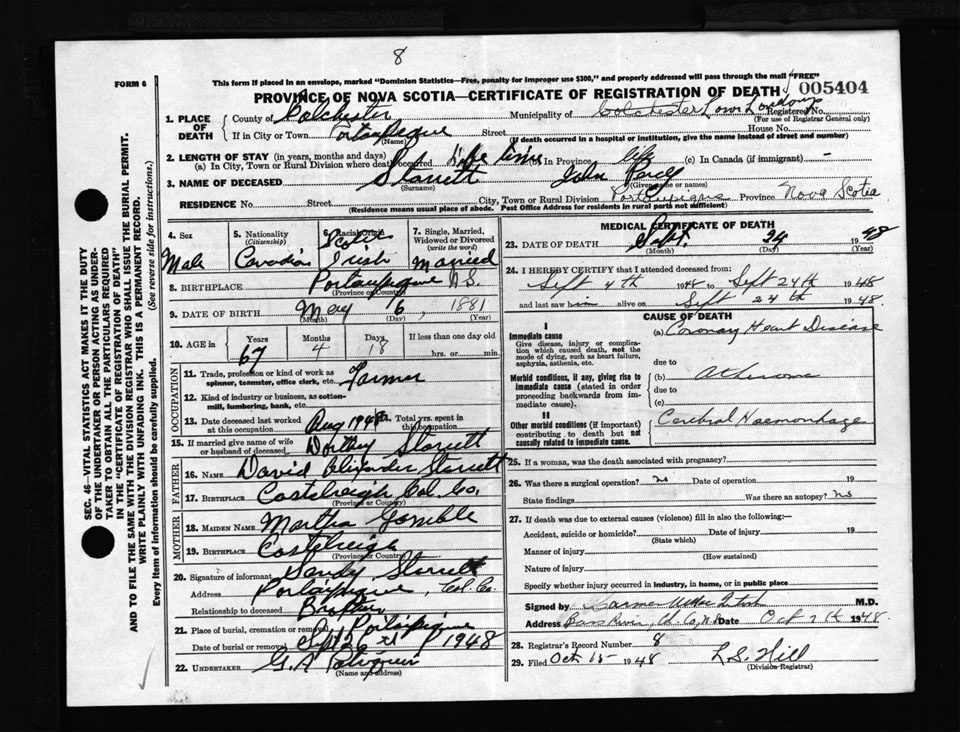 8
FORM 6
This form if placed in an envelope, marked "Dominion Statistics—Free, penalty for improper use $300," and properly addressed will pass through the mail "FREE"
PROVINCE OF NOVA SCOTIA—CERTIFICATE OF REGISTRATION OF DEATH 005404
SEC. 46—VITAL STATISTICS ACT MAKES IT THE DUTY
OF THE UNDERTAKER OR PERSON ACTING AS UNDER-
TAKER TO OBTAIN ALL THE PARTICULARS REQUIRED
IN THE "CERTIFICATE OF REGISTRATION OF DEATH"
AND TO FILE THE SAME WITH THE DIVISION REGISTRAR WHO SHALL ISSUE THE BURIAL PERMIT.
WRITE PLAINLY WITH UNFADING INK. THIS IS A PERMANENT RECORD.
Every item of information should be carefully supplied. (See reverse side for instructions.)
1. PLACE OF DEATH
County of Colchester Municipality of Colchester Registered No.
(For use of Registrar General only)
If in City or Town Portaupique Street House No.
(Name) (If death occurred in a hospital or institution, give the name instead of street and number)
2. LENGTH OF STAY (in years, months and days)
(a) In City, Town or Rural Division where death occurred life time In Province life (c) In Canada (if immigrant) -
3. NAME OF DECEASED Starrett John
(Surname) (Given name or names)
RESIDENCE No. Street City, Town or Rural Division Portaupique Province Nova Scotia
(Residence means usual place of abode. Post Office Address for residents in rural parts not sufficient)
4. Sex Male
5. Nationality (Citizenship) Canadian
Racial Origin Scotch Irish
7. Single, Married, Widowed or Divorced (write the word) Married
8. BIRTHPLACE Portaupique N.S.
(Province or Country)
9. DATE OF BIRTH May 6, 1881
(Month) (Day) (Year)
10. AGE in Years 67 Months 4 Days 18 If less than one day old
hrs. or min.
OCCUPATION
11. Trade, profession or kind of work as spinner, teamster, office clerk, etc. Farmer
12. Kind of industry or business, as cotton-mill, lumbering, bank, etc.
13. Date deceased last worked at this occupation Aug 1948 Total yrs. spent in this occupation
15. If married give name of wife or husband of deceased. Dorothy Starrett
FATHER
16. NAME David Alexander Starrett
17. BIRTHPLACE Castlereigh Col. Co.
(Province or Country)
MOTHER
18. MAIDEN NAME Martha Gamble
19. BIRTHPLACE Castlereigh
(Province or Country)
20. Signature of informant Sandy Starrett
Address Portaupique, Col. Co.
Relationship to deceased Brother
21. Place of burial, cremation or removal Portaupique
Date of burial or removal Sept 1948
22. UNDERTAKER G.A.
(Name and address)
MEDICAL CERTIFICATE OF DEATH
23. DATE OF DEATH Sept. 24 1948
(Month) (Day) (Year)
24. I HEREBY CERTIFY that I attended deceased from
Sept 4th 1948 to Sept 24th 1948
and last saw him alive on Sept 24th 1948.
CAUSE OF DEATH
I
Immediate cause
Give disease, injury or complication which caused death, not the mode of dying, such as heart failure, asphyxia, asthenia, etc.
(a) Coronary Heart Disease
due to
Morbid conditions, if any, giving rise to immediate cause (stated in order proceeding backwards from immediate cause).
(b) Atheroma
due to
(c)
II
Other morbid conditions (if important) contributing to death but not causally related to immediate cause.
Cerebral Haemorrhage
25. If a woman, was the death associated with pregnancy?
26. Was there a surgical operation? No Date of operation 19
State findings Was there an autopsy? No
27. If death was due to external causes (violence) fill in also the following:—
Accident, suicide or homicide? Date of injury 19
(State which)
Manner of injury
(How sustained)
Nature of injury
Specify whether injury occurred in industry, in home, or in public place
Signed by M.D.
Address Bass River, Col. Co, N.S. Date Oct 7th 1948
28. Registrar's Record Number 8
29. Filed Oct 15 - 1948 L.S. Hill
(Division Registrar)